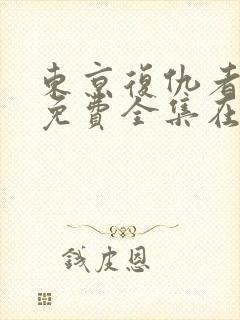 東京復仇者
免費全集在
钱皮恩